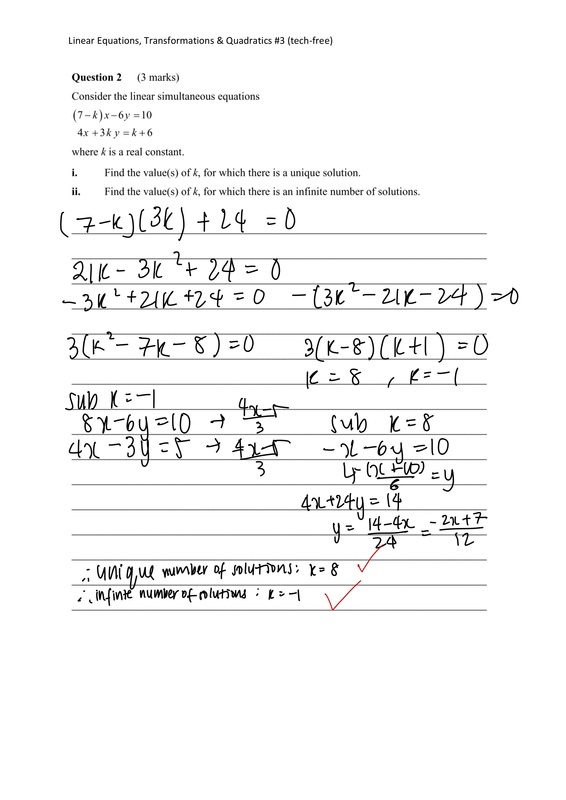 Linear Equations, Transformations & Quadratics #3 (tech-free)
Question 2 (3 marks)
Consider the linear simultaneous equations
(7−k)x−6y=10
4x+3ky=k+6
where k is a real constant.
i. Find the value(s) of k, for which there is a unique solution.
ii. Find the value(s) of k, for which there is an infinite number of solutions.
(7-k)(3k) + 24 = 0
21k - 3k² + 24 = 0
-3k² + 21k + 24 = 0 -(3k² - 21k - 24) = 0
3(k² - 7k - 8) = 0 3(k-8)(k+1) = 0
k = 8 , k = -1
sub k = -1
8x - 6y = 10 → (4x-5)/3 sub k = 8
4x - 3y = 5 → (4x-5)/3 -x - 6y = 10
↳ -(x+10)/6 = y
4x+24y = 14
y = (14-4x)/24 = (-2x+7)/12
∴ unique number of solutions: k = 8 ✓
∴ infinte number of solutions : k = -1 ✓